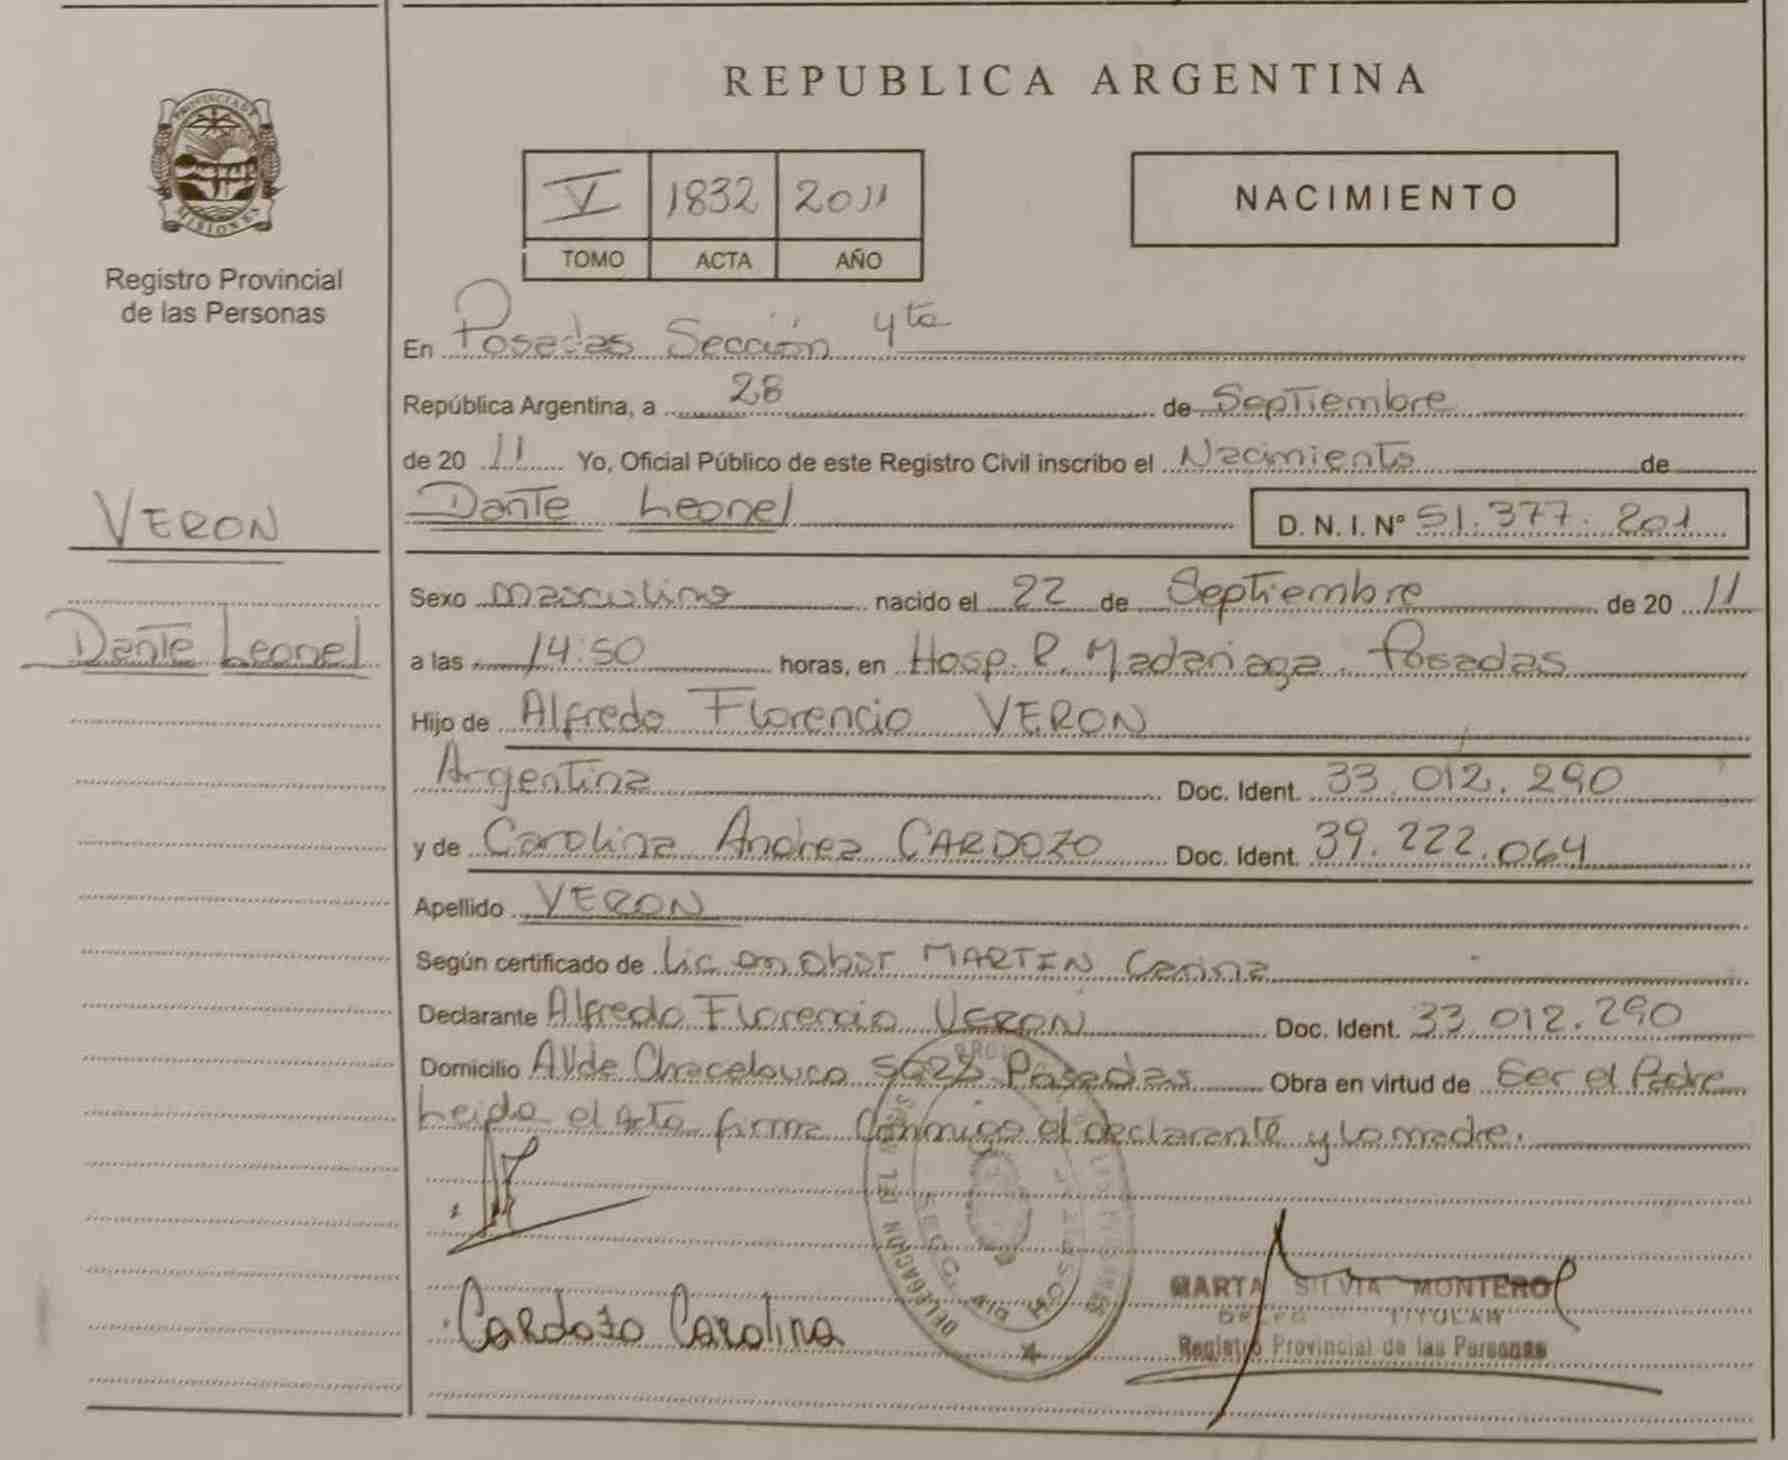 REPUBLICA ARGENTINA
PROVINCIA DE MISIONES
Registro Provincial
de las Personas
V 1832 2011
TOMO ACTA AÑO
NACIMIENTO
En Posadas Sección 4ta
República Argentina, a 28 de Septiembre
de 20 11 Yo, Oficial Público de este Registro Civil inscribo el Nacimiento de
Dante Leonel D. N. I. Nº 51.377.201
VERON
Dante Leonel
Sexo masculino nacido el 22 de Septiembre de 20 11
a las 14:50 horas, en Hosp. R. Madariaga. Posadas
Hijo de Alfredo Florencio VERON
Argentina Doc. Ident. 33.012.290
y de Carolina Andrea CARDOZO Doc. Ident. 39.222.064
Apellido VERON
Según certificado de Lic en Obst MARTIN Carina
Declarante Alfredo Florencio VERON Doc. Ident. 33.012.290
Domicilio AV de Posadas Obra en virtud de Ser el Padre
Leida el Acta firma Conmigo el declarante y la madre.
Cardozo Carolina
DELEGACION SECC. 4ta POSADAS
MARTA SILVIA MONTERO
TITULAR
Registro Provincial de las Personas